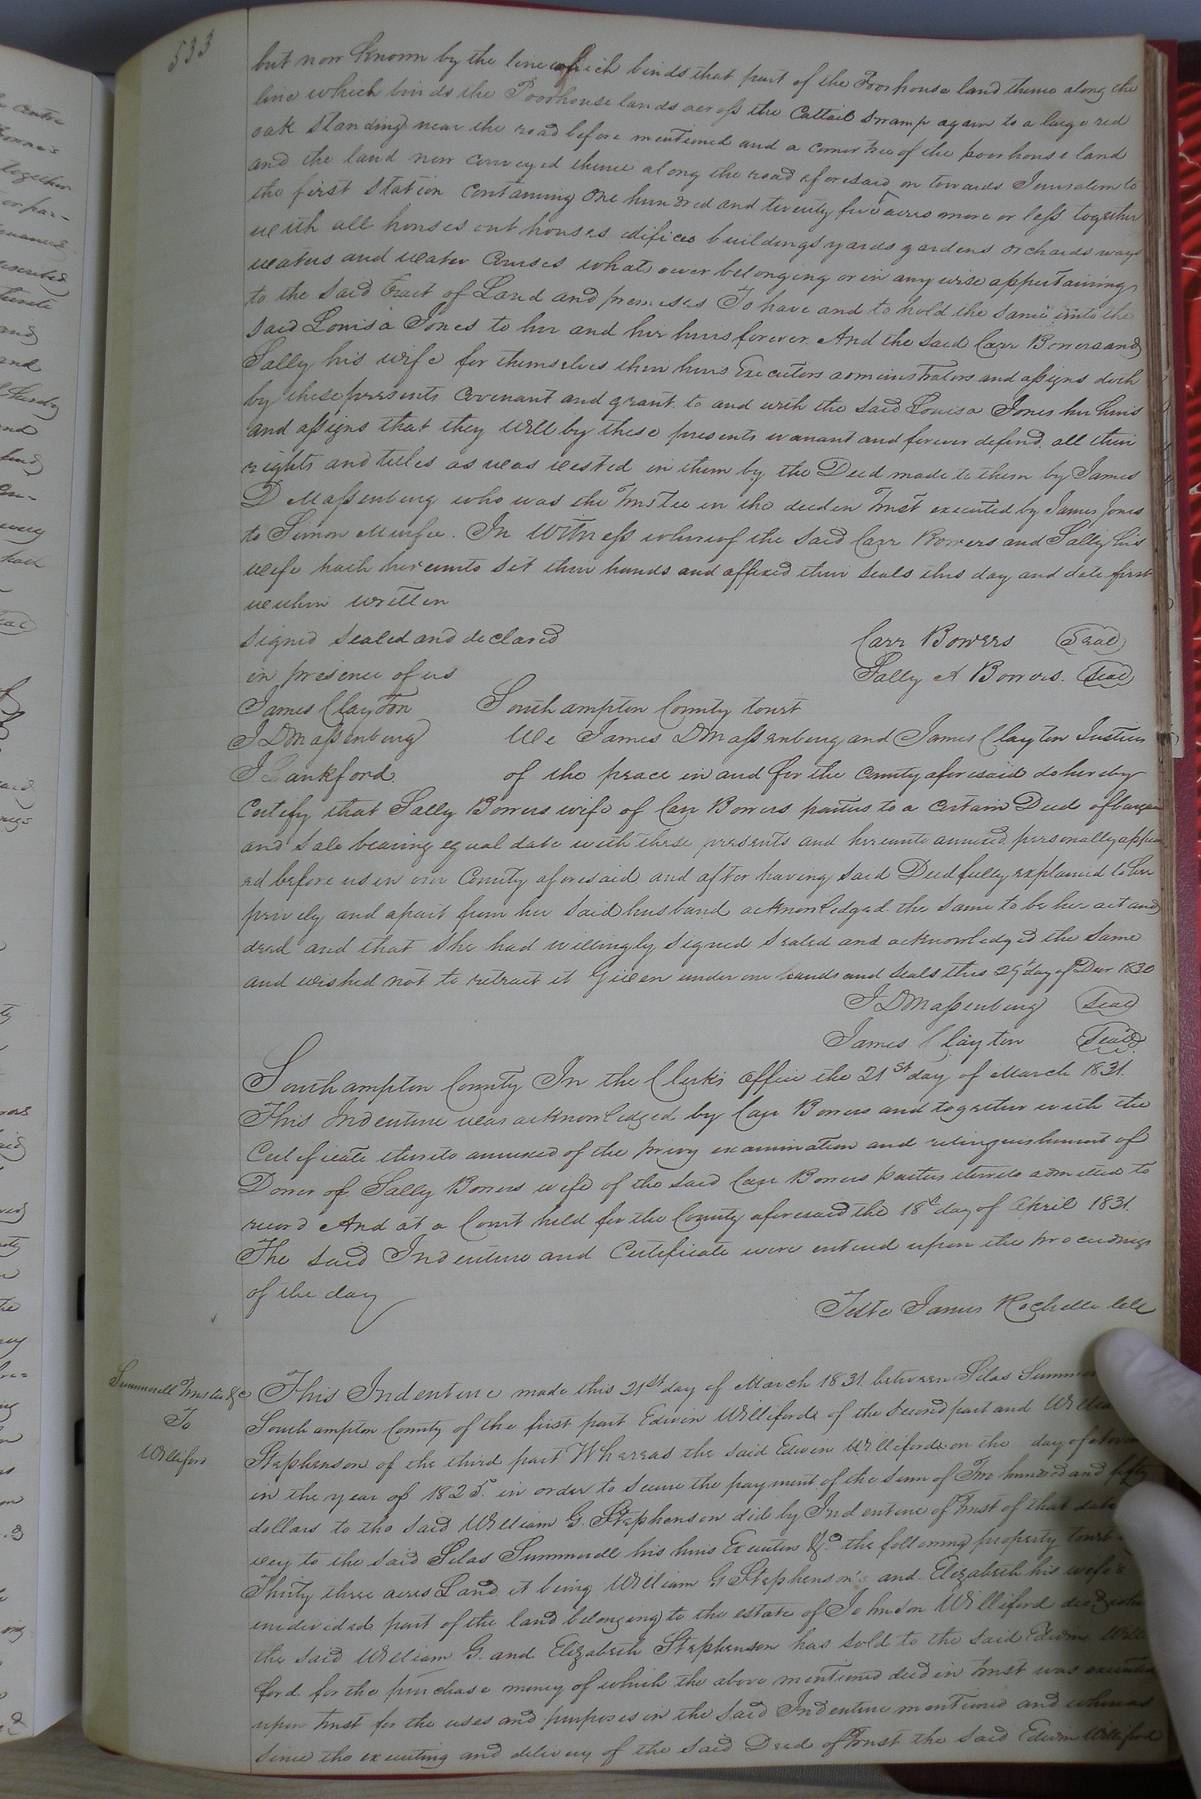 533
but now known by the line which binds that part of the Poorhouse land thence along the
line which binds the Poorhouse lands across the Cattail Swamp again to a large red
oak standing near the road before mentioned and a corner tree of the poorhouse land
and the land now conveyed thence along the road aforesaid on towards Jerusalem to
the first Station containing One hundred and twenty five acres more or less together
with all houses out houses edifices buildings yards gardens orchards ways
waters and water courses whatsoever belonging or in any wise appertaining
to the said tract of Land and premises To have and to hold the same unto the
said Louisa Jones to her and her heirs forever And the said Carr Bowers and
Sally his wife for themselves their heirs Executors administrators and assigns doth
by these presents Covenant and grant to and with the said Louisa Jones her heirs
and assigns that they will by these presents warrant and forever defend all their
rights and titles as was vested in them by the Deed made to them by James
D Massenburg who was the Trustee in the deed in Trust executed by James Jones
to Simon Murfee. In Witness whereof the said Carr Bowers and Sally his
wife hath hereunto set their hands and affixed their seals this day and date first
within written
signed sealed and declared Carr Bowers (Seal)
in presence of us Sally A Bowers. (Seal)
James Clayton Southampton County towit
J D Massenburg We James D Massenburg and James Clayton Justices
J Lankford of the peace in and for the County aforesaid do hereby
Certify that Sally Bowers wife of Carr Bowers parties to a certain Deed of bargain
and Sale bearing equal date with these presents and hereunto annexed personally appear
ed before us in our County aforesaid and after having said Deed fully explained to her
privily and apart from her said husband acknowledged the same to be her act and
deed and that she had willingly signed sealed and acknowledged the same
and wished not to retract it Given under our hands and seals this 29 day of Decr 1830
J D Massenburg (Seal)
James Clayton (Seal)
Southampton County In the Clerk's office the 21st day of March 1831.
This Indenture was acknowledged by Carr Bowers and together with the
Certificate thereto annexed of the privy examination and relinquishment of
Dower of Sally Bowers wife of the said Carr Bowers parties thereto admitted to
record And at a Court held for the County aforesaid the 18th day of April 1831.
The said Indenture and Certificate were entered upon the proceedings
of the day
Teste James Rochelle Clk
Summerell Trustee &c
To
Williford
This Indenture made this 21st day of March 1831 between Silas
Southampton County of the first part Edwin Williford of the second part and
Stephenson of the third part Whereas the said Edwin Williford on the day of
in the year of 1825 in order to secure the payment of the sum of Two hundred and fifty
dollars to the said William G. Stephenson did by Indenture of trust of that date
vey to the said Silas Summerell his heirs Executors &c. the following property towit
Thirty three acres Land it being William G Stephenson's and Elizabeth his wife's
undivided part of the land belonging to the estate of Johnson Williford decd
the said William G. and Elizabeth Stephenson has sold to the said Edwin Willi
ford for the purchase money of which the above mentioned deed in trust was executed
upon trust for the uses and purposes in the said Indenture mentioned and whereas
since the executing and delivery of the said Deed of trust the said Edwin Williford